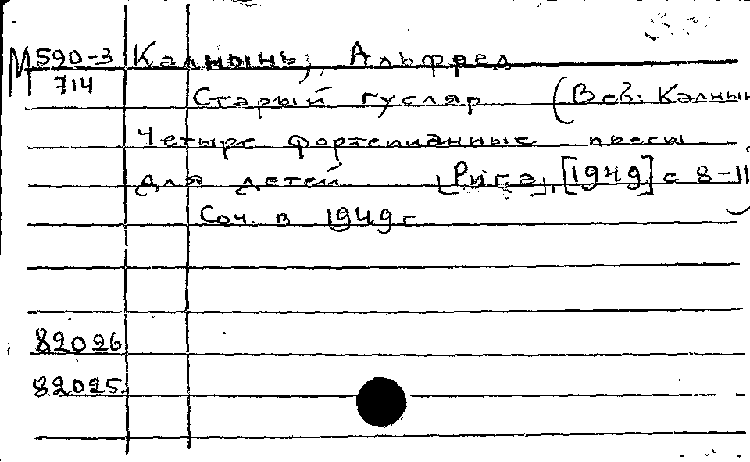 М 590-3 Калнынь, Альфред
714
Старый гусляр (В сб: Калнын
Четыре фортепианные пьесы
для детей [Рига], [1949] с 8-11)
Соч. в 1949 г
82026
82025